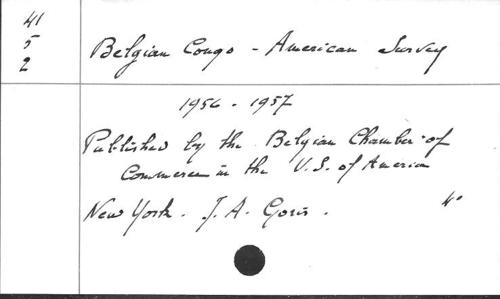 41
5
2
Belgian Congo - American Survey
1956 - 1957
Published by the Belgian Chamber of
Commerce in the U.S. of America
New York. J. A. Goris. 4°